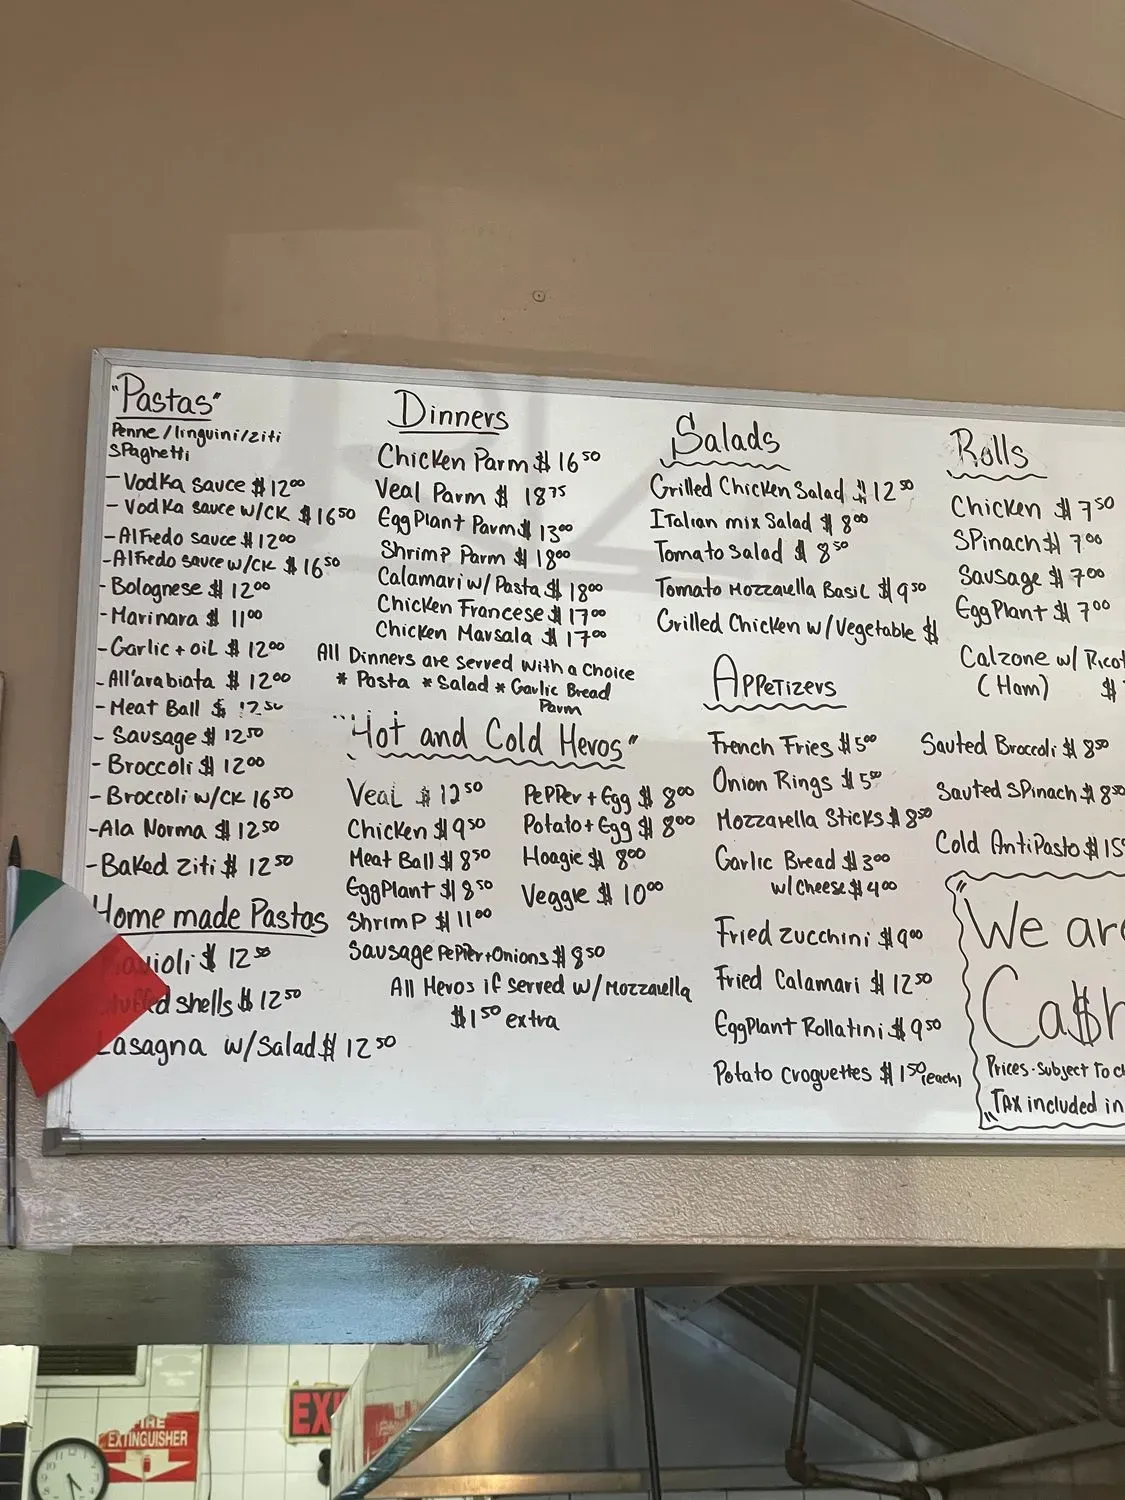 "Pastas"
Penne/linguini/ziti
SPaghetti
- Vodka sauce $12⁰⁰
- Vodka sauce w/CK $16⁵⁰
- Alfredo sauce $12⁰⁰
- Alfredo sauce w/CK $16⁵⁰
- Bolognese $12⁰⁰
- Marinara $11⁰⁰
- Garlic + oil $12⁰⁰
- All'arabiata $12⁰⁰
- Meat Ball $12.50
- Sausage $12⁵⁰
- Broccoli $12⁰⁰
- Broccoli w/CK 16⁵⁰
- Ala Norma $12⁵⁰
- Baked Ziti $12⁵⁰
Home made Pastas
Ravioli $12⁵⁰
Stuffed shells $12⁵⁰
Lasagna w/Salad $12⁵⁰
Dinners
Chicken Parm $16⁵⁰
Veal Parm $18⁷⁵
EggPlant Parm $13⁰⁰
Shrimp Parm $18⁰⁰
Calamari w/Pasta $18⁰⁰
Chicken Francese $17⁰⁰
Chicken Marsala $17⁰⁰
All Dinners are served with a choice
* Pasta * Salad * Garlic Bread
Parm
"Hot and Cold Heros"
Veal $12⁵⁰
Chicken $9⁵⁰
Meat Ball $8⁵⁰
EggPlant $8⁵⁰
Shrimp $11⁰⁰
Sausage PePPer+Onions $8⁵⁰
PePPer + Egg $8⁰⁰
Potato + Egg $8⁰⁰
Hoagie $8⁰⁰
Veggie $10⁰⁰
All Heros if served w/Mozzarella
$1⁵⁰ extra
Salads
Grilled Chicken Salad $12⁵⁰
Italian mix Salad $8⁰⁰
Tomato Salad $8⁵⁰
Tomato Mozzarella Basil $9⁵⁰
Grilled Chicken w/Vegetable $
APPetizers
French Fries $5⁰⁰
Onion Rings $5⁵⁰
Mozzarella Sticks $8⁵⁰
Garlic Bread $3⁰⁰
w/cheese $4⁰⁰
Fried zucchini $9⁰⁰
Fried Calamari $12⁵⁰
EggPlant Rollatini $9⁵⁰
Potato croquettes $1⁵⁰ (each)
Rolls
Chicken $7⁵⁰
SPinach $7⁰⁰
Sausage $7⁰⁰
EggPlant $7⁰⁰
Calzone w/Ricot
(Ham) $
Sauted Broccoli $8⁵⁰
Sauted SPinach $8⁵⁰
Cold AntiPasto $15
"We are
Ca$h
Prices-subject to c
"TAX included in
EXI
FIRE
EXTINGUISHER